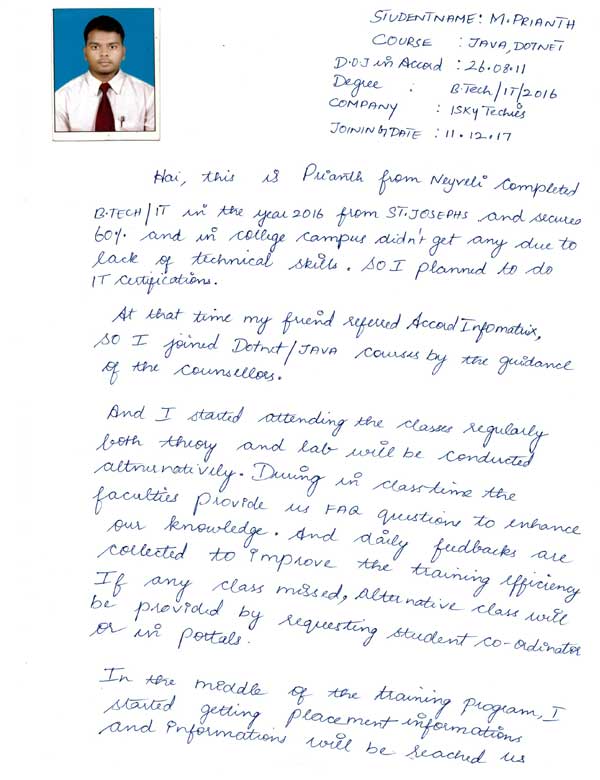 STUDENTNAME: M.PRIANTH
COURSE : JAVA, DOTNET
D.O.J in Accord : 26.08.11
Degree : B.Tech/IT/2016
COMPANY : ISKY Techies
JOINING DATE : 11.12.17
Hai, this is Prianth from Neyveli completed
B.TECH/IT in the year 2016 from ST.JOSEPHS and secures
60% and in college campus didn't get any due to
lack of technical skills. SO I planned to do
IT certifications.
At that time my friend referred Accord Infomatrix,
SO I joined Dotnet/JAVA courses by the guidance
of the counsellors.
And I started attending the classes regularly
both theory and lab will be conducted
altnurnatively. During in class time the
faculties provide us FAQ questions to enhance
our knowledge. And daily feedbacks are
collected to improve the training efficiency
If any class missed, Alternative class will
be provided by requesting student co-ordinator
or in portals.
In the middle of the training program, I
started getting placement informations
and informations will be reached us